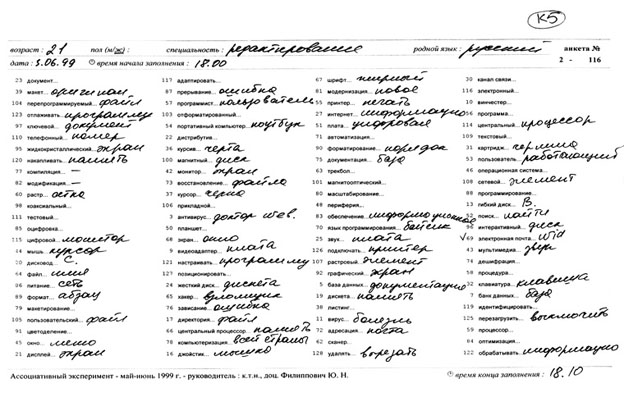 К5
возраст : 21 пол (м/ж) : специальность : редактирование родной язык : русский анкета №
дата : 3.06.99 время начала заполнения : 18.00 2 - 116
23 документ...
39 макет... оригинал
104 перепрограммируемый... файл
123 отлаживать... программу
97 ключевой... документ
110 телефонный... номер
95 жидкокристаллический... экран
120 накапливать... память
77 компиляция... –
82 модификация... –
60 растр...
98 коаксиальный...
111 тестовый...
85 оцифровка...
цифровой... монитор
мышь... курсор
дисковод... C.
64 файл... имя
06 питание... сеть
89 формат... абзац
79 макетирование...
105 пользовательский... файл
91 цветоделение...
45 окно... меню
21 дисплей... экран
117 адаптировать...
87 прерывание... ошибка
57 программист... пользователь
103 отформатированный...
54 портативный компьютер... ноутбук
22 дистрибутив...
36 курсив... черта
100 магнитный... диск
42 монитор... экран
73 восстановление... файла
37 курсор... черта
106 прикладной...
3 антивирус... доктор
50 планшет...
68 экран... окно
9 видеоадаптер... плата
121 настраивать... программу
127 позиционировать...
24 жесткий диск... дискета
65 хакер... взломщик
76 зависание... ошибка
17 директория... файл
66 центральный процессор... память
78 компьютеризация... всей страны
16 джойстик... мышка
67 шрифт... жирный
81 модернизация... новое
55 принтер... печать
27 интернет... информация
51 плата... цифровая
71 автоматизация...
90 форматирование... порядок
75 документация... база
63 трекбол...
101 магнитооптический...
80 масштабирование...
48 периферия...
83 обеспечение... информационное
70 язык программирования... бейсик
25 звук... плата
126 подключать... принтер
107 растровый... элемент
92 графический... экран
5 база данных... документация
19 дискета... память
38 листинг...
11 вирус... болезнь
72 адресация... почта
62 сканер...
128 удалять... вырезать
30 канал связи...
116 электронный...
10 винчестер...
56 программа...
114 центральный... процессор
109 текстовый...
31 картридж... чернила
53 пользователь... работающий
46 операционная система...
108 сетевой... элемент
88 программирование...
13 гибкий диск... B.
52 поиск... найти
96 интерактивный... диск
69 электронная почта...
43 мультимедиа... звук
74 дешифрация...
58 процедура...
32 клавиатура... клавиша
7 банк данных... база
119 идентифицировать...
125 перезагрузить... выключить
59 процессор...
84 оптимизация...
122 обрабатывать... информацию
Ассоциативный эксперимент - май-июнь 1999 г. - руководитель : к.т.н., доц. Филиппович Ю. Н. время конца заполнения : 18.10